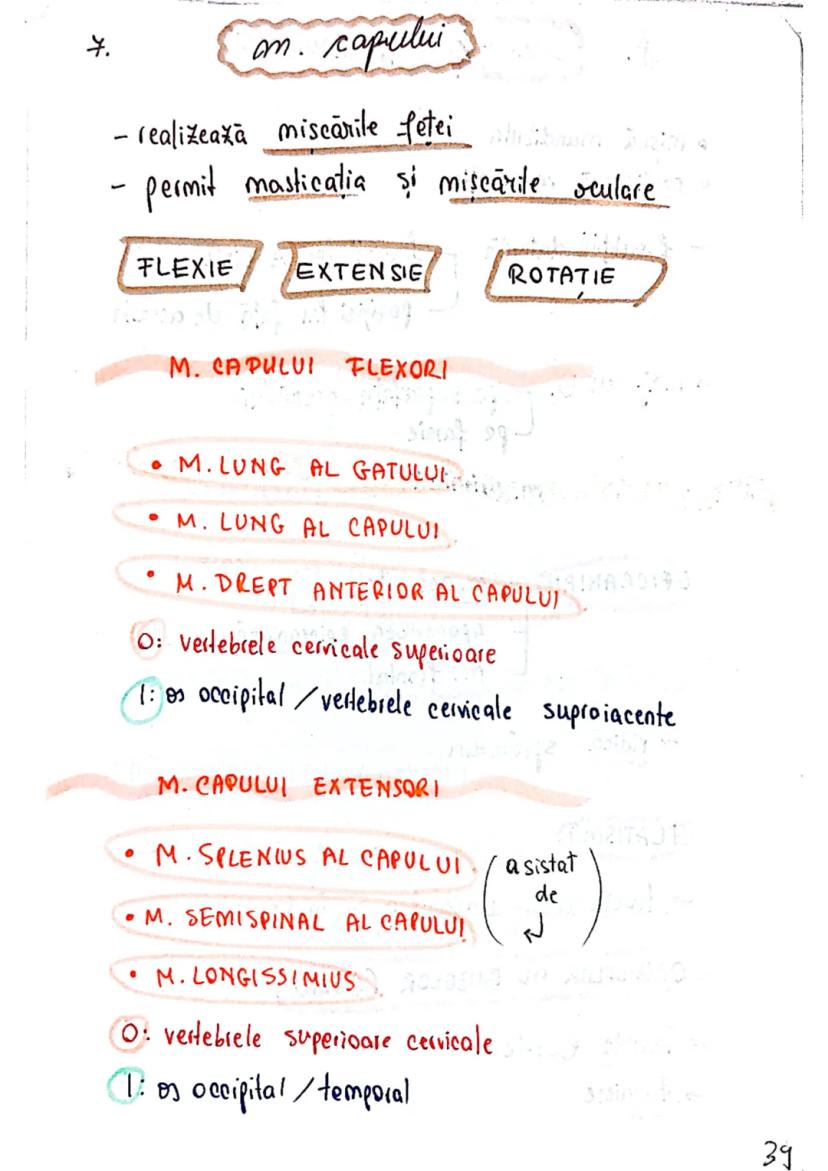 7.
m. capului
- realizează mișcările feței
- permit masticația și mișcările oculare
FLEXIE EXTENSIE ROTAȚIE
M. CAPULUI FLEXORI
• M. LUNG AL GATULUI
• M. LUNG AL CAPULUI
• M. DREPT ANTERIOR AL CAPULUI
O: vertebrele cervicale superioare
I: os occipital / vertebrele cervicale suproiacente
M. CAPULUI EXTENSORI
• M. SPLENIUS AL CAPULUI (asistat
de
• M. SEMISPINAL AL CAPULUI ↵)
• M. LONGISSIMIUS
O: vertebrele superioare cervicale
I: os occipital / temporal
39